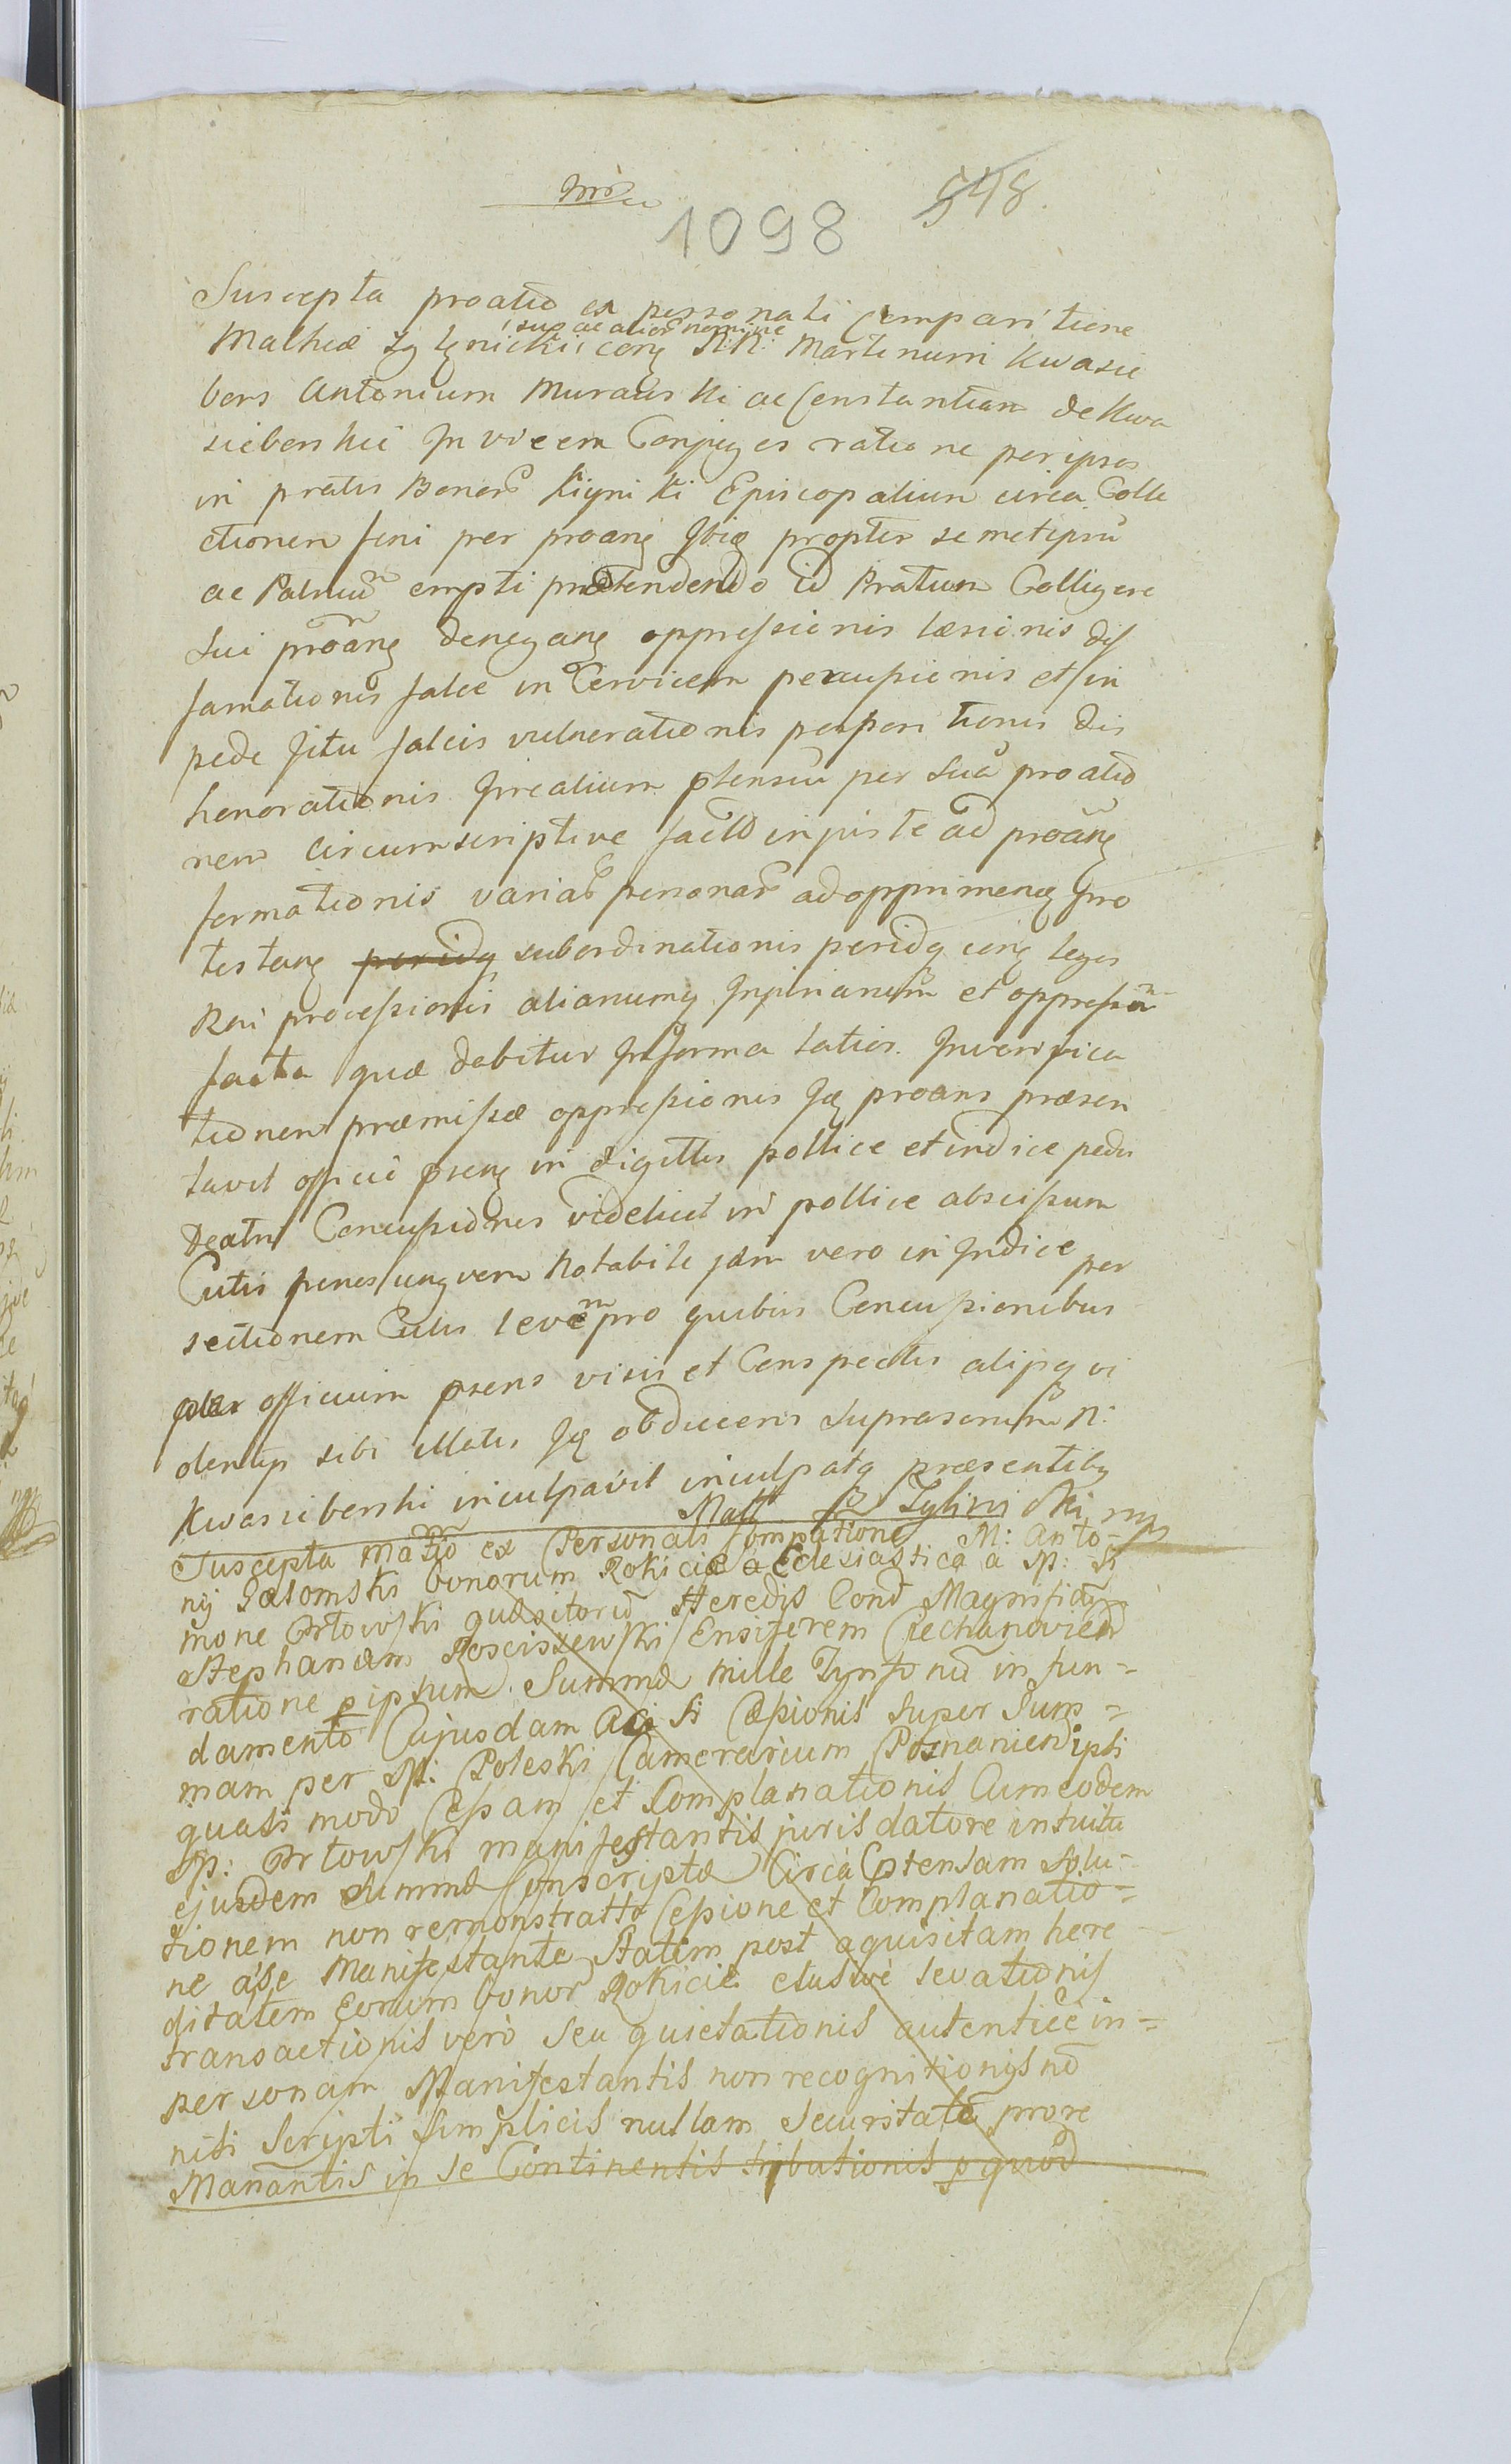 548.
1098
Suscepta proatio ex personali Comparitione
suo ac alior nomine
Mathiæ Zglinickii cong N:N: Martinum Kwasie
bors Antonium Murawski ac Constantiam de Kwa
siebenskie In vicem Conjuges ratione per ipsos
in pratis Bonor Episcopalium circa Colle
ctionem feni per proang propter semetipsu
ac empti prætendendo id Pratum Colligere
sui proang denegang oppressionis læsionis dif
famationis falce in Cervicem percussionis et in
pede Jctu falcis vulnerationis dis
honorationis per sua proatio
nem circumscriptive injuste ad proang
formationis variar personar ad opprimeng Pro
testang peridq subordinationis peridq cong leges
Rni processionis aliarumq Injuriarum et oppressu
facta quæ dabitur Informa latior. Inverifica
tionem præmissæ oppressionis Jdq proans præsen
tavit officio pseng in digitis pollice et indice pedis
Dextri Concussiones videlicet in pollice abscissum
Cutis penes ungvem Notabile jam vero in Indice per
sectionem Cutis levem pro quibus Concussionibus
per officium psens visis et Conspectis alijsq vi
olentijs sibi illatis Jdq obducens suprascrum N:
Kwasieberski inculpavit inculpatq præsentibq
Math Zglinicki mp
Suscepta Matio ex Personali Compatione M: Anto-
nij Bonorum Rokicie a Eclesiastica a M: Si
mone Ortowski quæsitoru Heredis Cond Magnificum
Stephanum Rosciszewski Ensiferem Ciechanovien
ratione p ipsum Summæ mille Tynfonu in fun=
damento Cujusdam Cessionis super Sum=
mam per M: Poleski Camerarium Posnanien ipsi
quasi modo Cessam et Complanationis Cum eodem
M: Ortowski manifestantis juris datore intuitu
ejusdem Summæ Conscriptæ Circa Ptensam Solu-
tionem non remonstratta Cessione et Complanatio=
ne a se Manifestante Statim post aquisitam here
ditatem Eorum bonor Rokicie elusivè levationis
transactionis verò seu quietationis autenticè in=
personam Manifestantis non recognitionis nō
nisi Scripti Simplicis nullam Securitatē prore
Manantis in se Continentis p quod